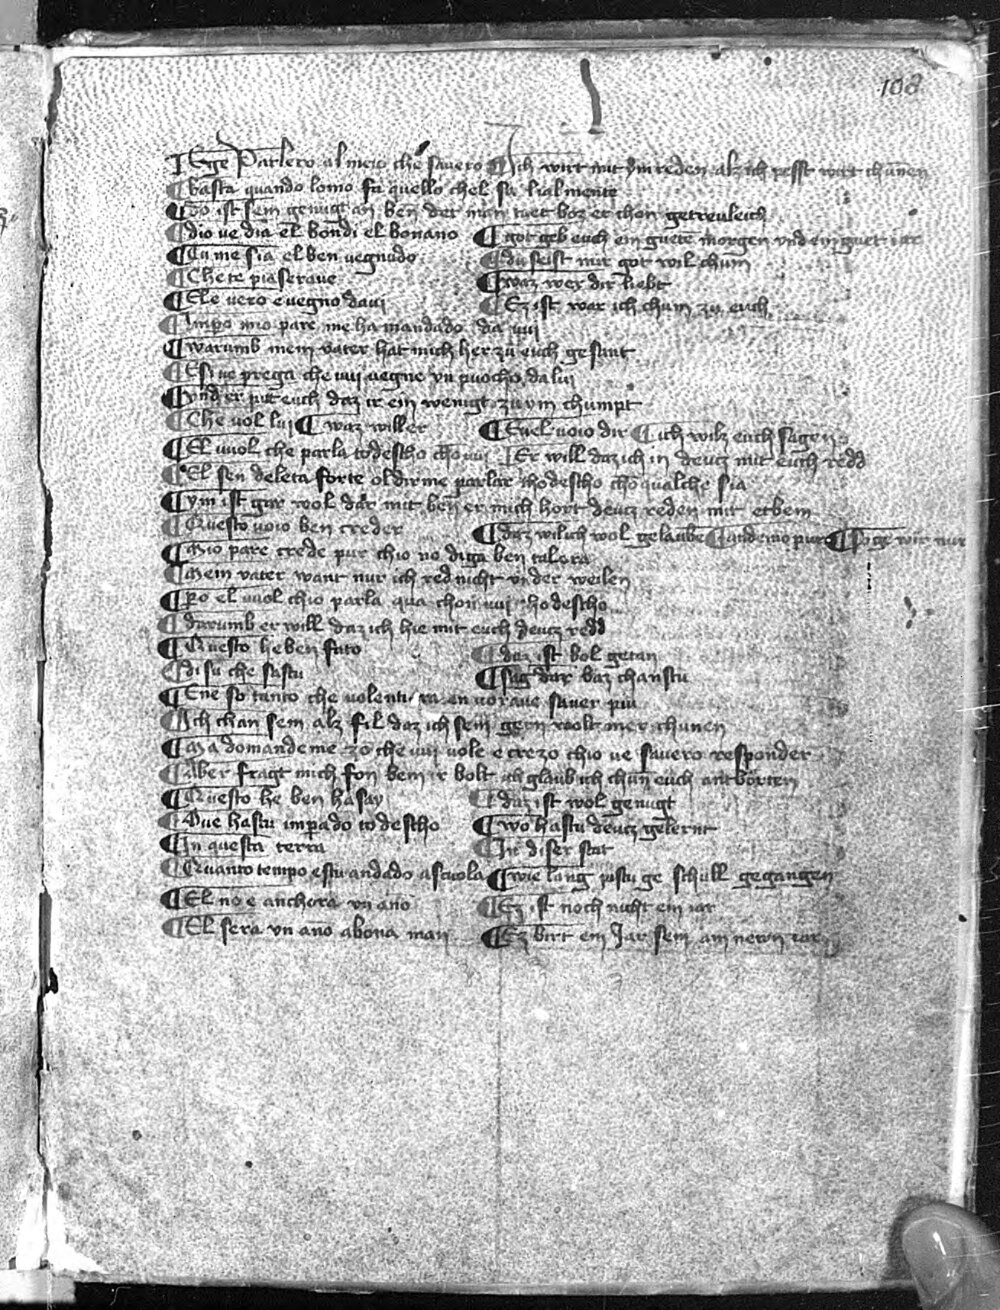 108
I Ege Parlero al meio che savero ¶ Ich wirt mit ym reden alz ich pesst wirt chunen
¶ basta quando lomo fa quello chel sa lialmente
¶ Do ist sein genugt an ben der man tuet boz er chon getreuleich
¶ dio ve dia el bondi el bonano ¶ got geb euch ein guete morgen vnd ein guet iar
¶ Cu me sia el ben vegnudo ¶ du seist mir got wil chum
¶ Che te piaserave ¶ waz wer dir liebt
¶ El e vero e vegno da vui ¶ Ez ist war ich chum zu euch
¶ Impo mio pare me ha mandado da vui
¶ warumb mein vater hat mich her zu euch gesant
¶ E si ve prega che vui vegne vn puocho da lui
¶ vnd er pit euch daz ir ein wenigt zu ym chumpt
¶ Che vol lui ¶ waz will er ¶ E vel voio dir ¶ ich wilz euch sagen
¶ El vuol che parla todescho cho vui ¶ Er will daz ich in deucz mit euch redd
¶ El sen deleta forte oldirme parlar thodescho cho qualche sia
¶ ym ist gar wol dar mit ben er mich hort deucz reden mit etbem
¶ Questo voio ben creder ¶ daz wil ich wol gelaube ¶ andemo pur ¶ So ge wir nur
¶ Mio pare crede pur chio no diga ben talora
¶ Mein vater want nur ich red nicht vnder weilen
¶ po el vuol chio parla qua chon vui thodescho
¶ darumb er will daz ich hie mit euch deucz redd
¶ Questo he ben fato ¶ daz ist bol getan
¶ di su che sastu ¶ sag dar baz chanstu
¶ E ne so tanto che volentira en vorave saver piu
¶ Ich chan sein alz fil daz ich sein gern wolt mer chunen
¶ Ma domandeme zo che vui vole e crezo chio ve savero responder
¶ Aber fragt mich fon bem ir bolt ich glaub ich chun euch antborten
¶ Questo he ben hasay ¶ daz ist wol genugt
¶ Oue hastu impado todescho ¶ wo hastu deucz gelernt
¶ In questa terra ¶ In diser stat
¶ Quanto tempo estu andado a scuola ¶ wie lang pistu ge schull gegangen
¶ El no e anchora vn ano ¶ Ez ist noch nicht ein iar
¶ El sera vn ano abona man ¶ Ez birt ein Jar sein am newn iar